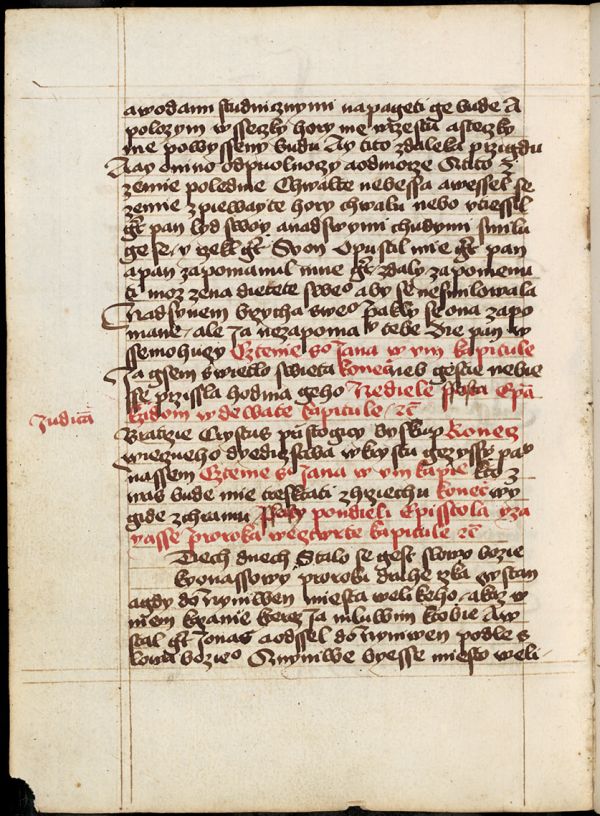 awodami studnicznymi napageti ge bude A
polozym wsseczky hory me w czestu a steczky
me powysseny budu Ay tito zdaleka przigdu
Aay onino odpuolnoczy aodmorze A tito z
zemie polednie Chwalte nebessa awessel se
zemie zpiewayte hory chwalu nebo vtiessil
gt pan lyd swoy anadswymi chudymi smilu
ge se / y rzekl gt Syon Opustil mie gt pan
apan zapomanul mne gt / zdaly zapomenu
ti moz zena dietete sweo aby se nesmilowala
nadsynem brzycha sweo pakly se ona zapo
mane / ale Ja nezapomanu tebe Die pan w
ssemohuczy Cztenie so Jana w viii kapitule
Ja gsem swietlo swieta konecz neb gestie nebie
sse przissla hodina geho Nediele ssta Epla
Judica kzidom w dewate kapitule / zc
Bratrzie Crystus pristogicy byskup Konecz
wieczneho dyedicztwa wkrystu gezyssy pa
nassem Cztenie so Jana w viii kapie kto z
was bude mie tresktati zhrziechu konecz wy
gide zchramu / sstky pondieli Episstola yza
yasse proroka weczwrte kapitule zc
Wtiech dnech Stalo se gest slowo bozie
kyonassowy proroku druhe rzka wstan
agdy do Nyniwen miesta welikeho akaz w
niem kazanie kterez Ja mluwim ktobie A w
stal gt Jonas aodssel do Nyniwen podle s
lowa bozieo A nyniwe byesse miesto weli-